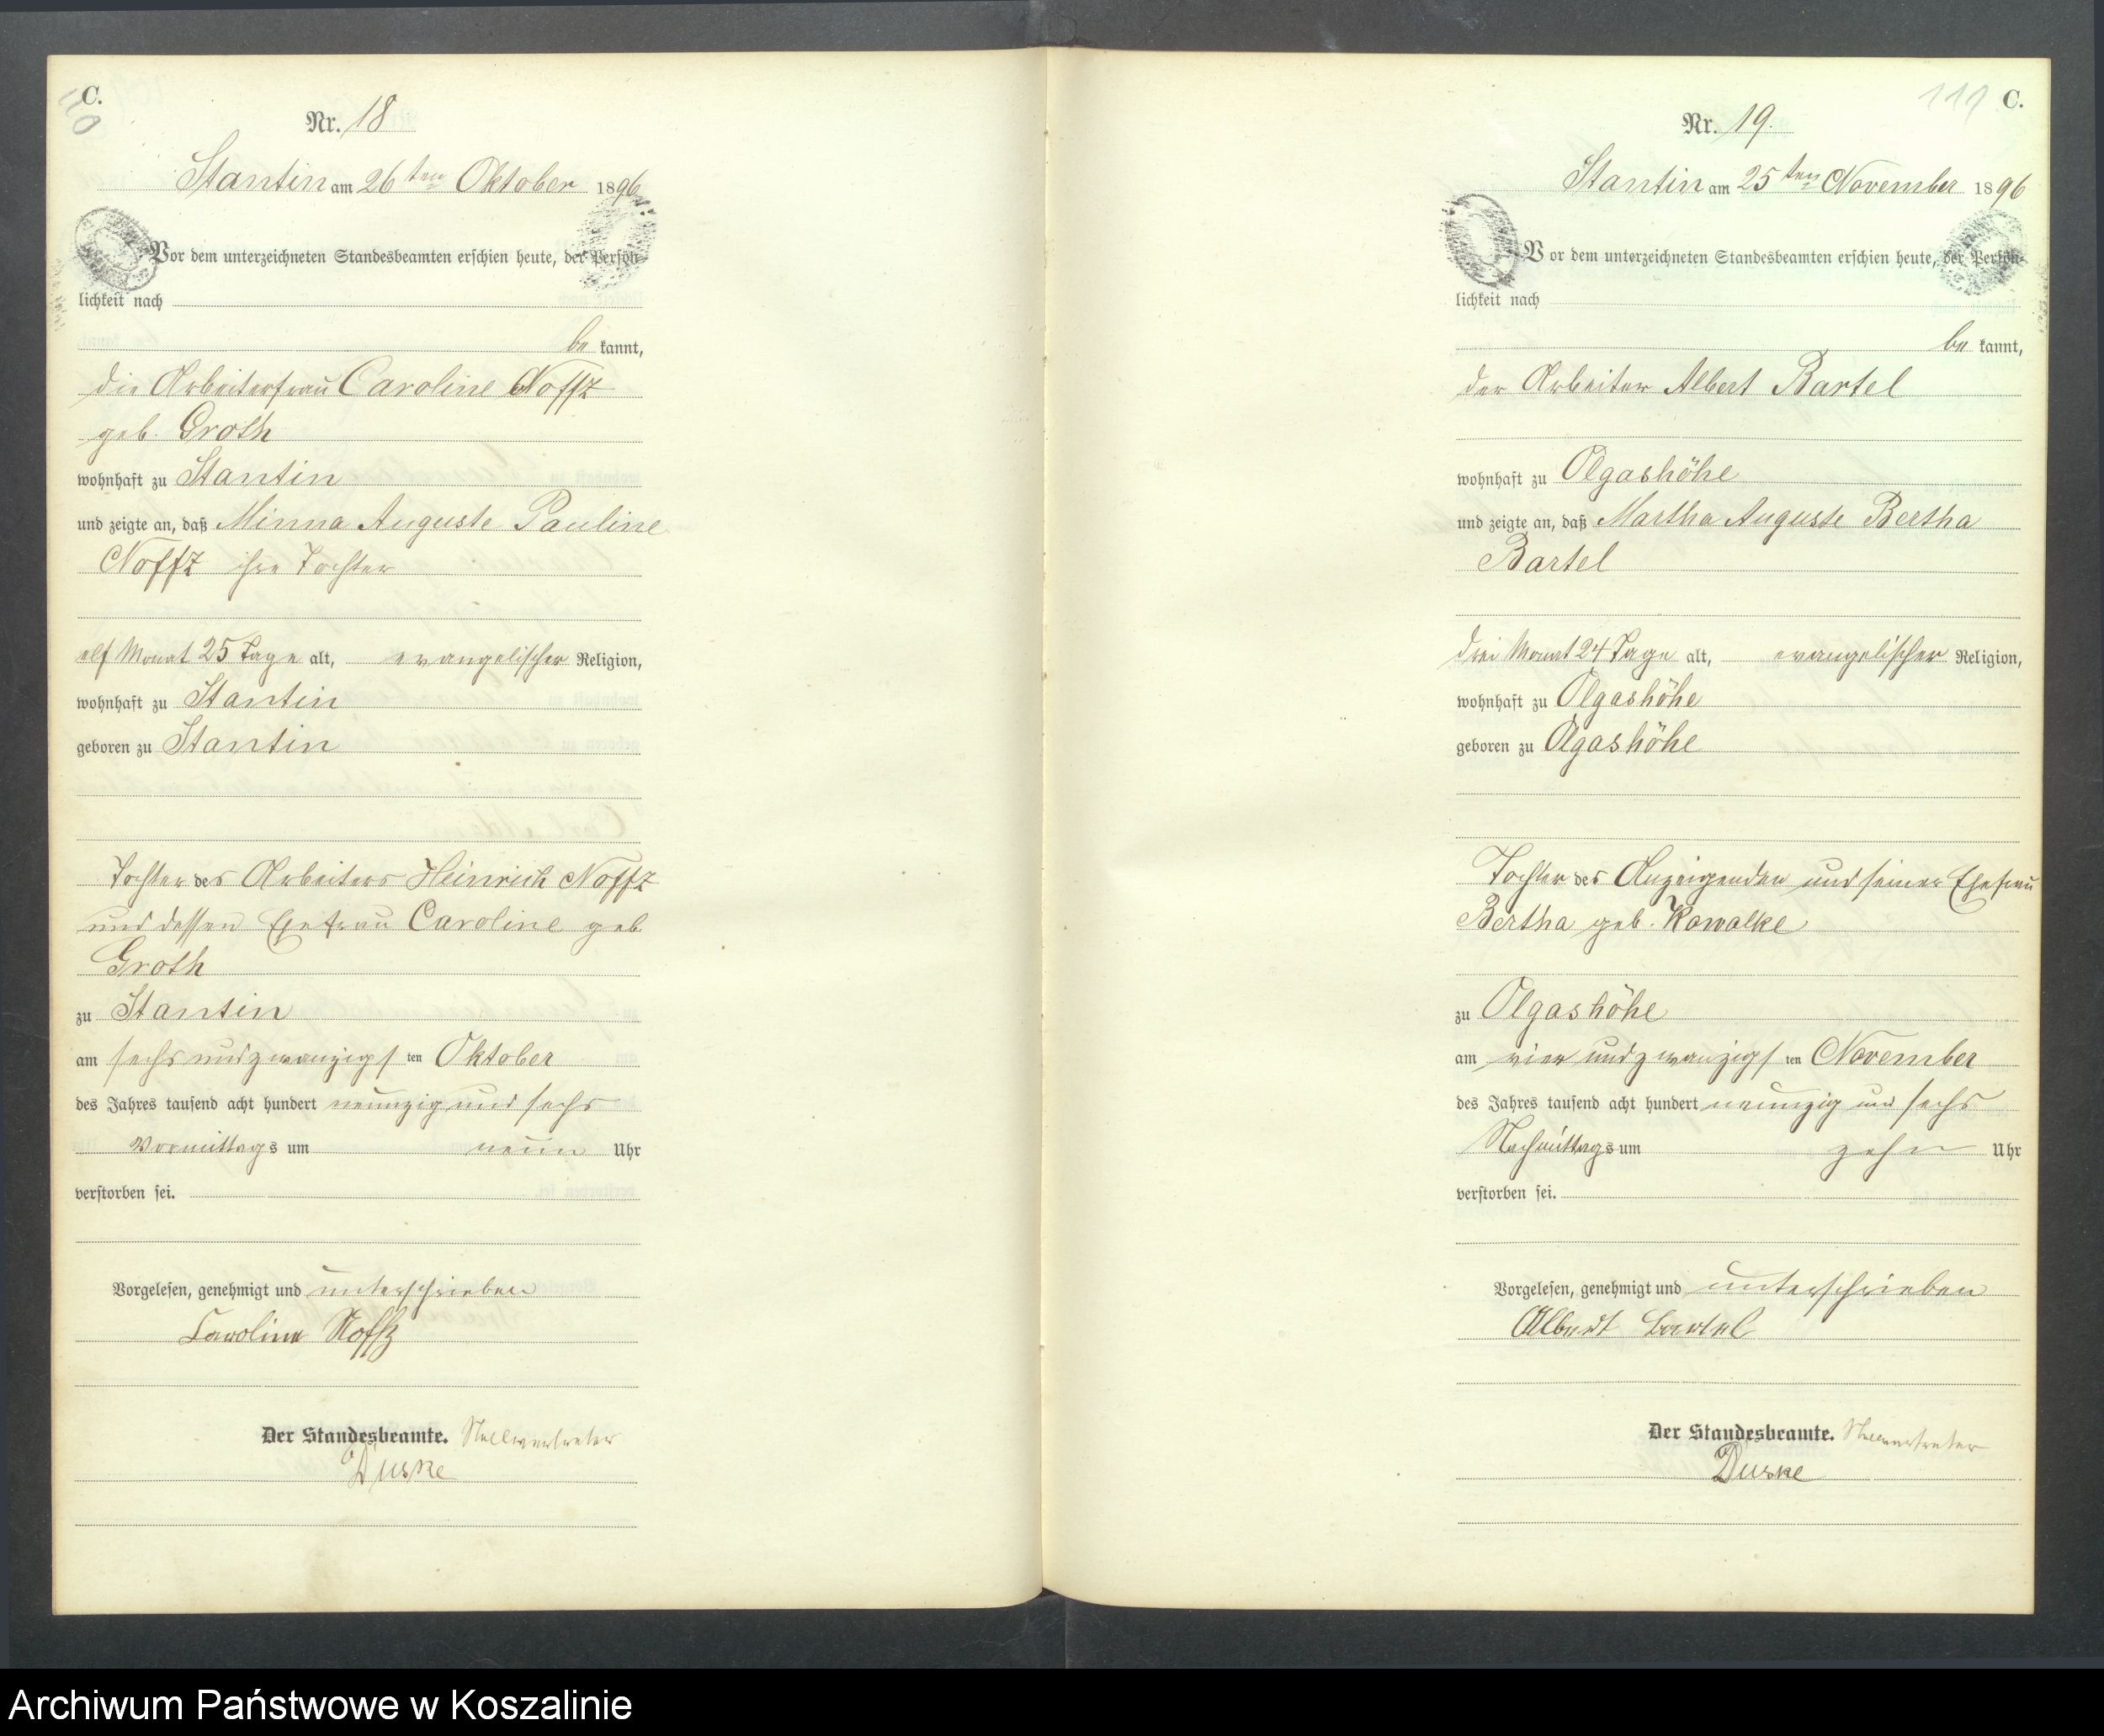 C.
110
Nr. 18
Stantin am 26ten Oktober 1896
Vor dem unterzeichneten Standesbeamten erschien heute, der Persön-
lichkeit nach
be kannt,
die Arbeiterfrau Caroline Noffz
geb. Groth
wohnhaft zu Stantin
und zeigte an, daß Minna Auguste Pauline
Noffz ihre Tochter
elf Monat 25 Tage alt, evangelischer Religion,
wohnhaft zu Stantin
geboren zu Stantin
Tochter des Arbeiters Heinrich Noffz
und dessen Ehefrau Caroline geb
Groth
zu Stantin
am sechs und zwanzigsten Oktober
des Jahres tausend acht hundert neunzig und sechs
Vormittags um neun Uhr
verstorben sei.
Vorgelesen, genehmigt und unterschrieben
Caroline Noffz
Der Standesbeamte. Stellvertreter
Duske
111 C.
Nr. 19.
Stantin am 25ten November 1896
Vor dem unterzeichneten Standesbeamten erschien heute, der Persön-
lichkeit nach
be kannt,
der Arbeiter Albert Bartel
wohnhaft zu Olgashöhe
und zeigte an, daß Martha Auguste Bertha
Bartel
drei Monat 24 Tage alt, evangelischer Religion,
wohnhaft zu Olgashöhe
geboren zu Olgashöhe
Tochter des Anzeigenden und seiner Ehefrau
Bertha geb. Kowalke
zu Olgashöhe
am vier und zwanzigsten November
des Jahres tausend acht hundert neunzig und sechs
Nachmittags um zehn Uhr
verstorben sei.
Vorgelesen, genehmigt und unterschrieben
Albert Bartel
Der Standesbeamte. Stellvertreter
Duske
Archiwum Państwowe w Koszalinie